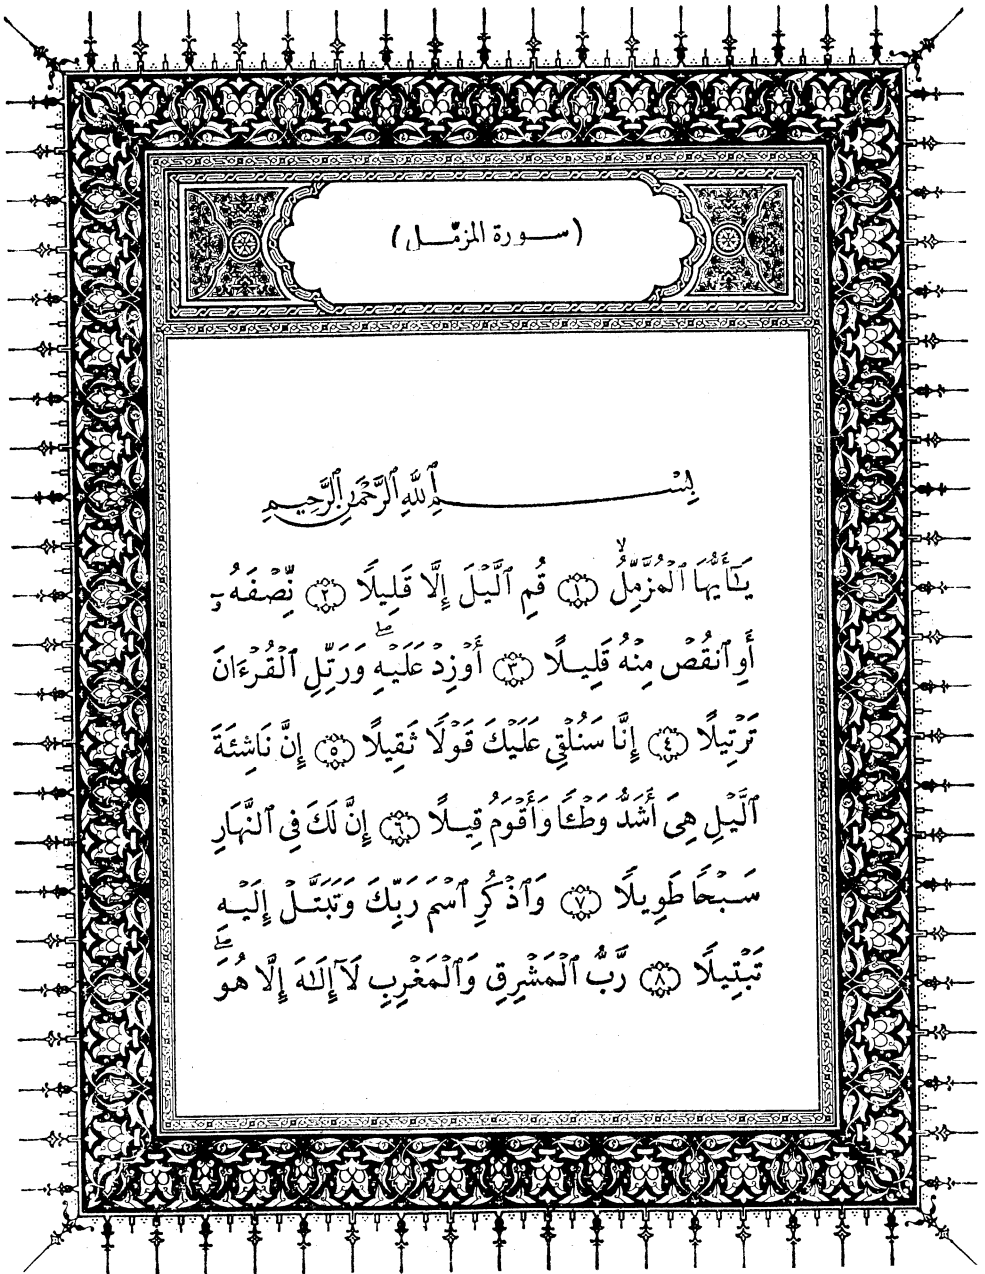 (سورة المزمّل)
بِسْمِ ٱللَّهِ ٱلرَّحْمَٰنِ ٱلرَّحِيمِ
يَٰٓأَيُّهَا ٱلْمُزَّمِّلُ ۙ ﴿١﴾ قُمِ ٱلَّيْلَ إِلَّا قَلِيلًا ﴿٢﴾ نِّصْفَهُۥٓ
أَوِ ٱنقُصْ مِنْهُ قَلِيلًا ﴿٣﴾ أَوْ زِدْ عَلَيْهِ ۖ وَرَتِّلِ ٱلْقُرْءَانَ
تَرْتِيلًا ﴿٤﴾ إِنَّا سَنُلْقِى عَلَيْكَ قَوْلًا ثَقِيلًا ﴿٥﴾ إِنَّ نَاشِئَةَ
ٱلَّيْلِ هِىَ أَشَدُّ وَطْـًٔا وَأَقْوَمُ قِيلًا ﴿٦﴾ إِنَّ لَكَ فِى ٱلنَّهَارِ
سَبْحًا طَوِيلًا ﴿٧﴾ وَٱذْكُرِ ٱسْمَ رَبِّكَ وَتَبَتَّلْ إِلَيْهِ
تَبْتِيلًا ﴿٨﴾ رَّبُّ ٱلْمَشْرِقِ وَٱلْمَغْرِبِ لَآ إِلَٰهَ إِلَّا هُوَ ۖ